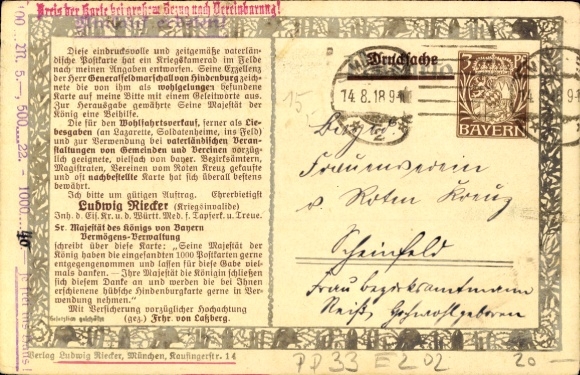 Preis der Karte bei großem Bezug nach Vereinbarung!
Diese eindrucksvolle und zeitgemäße vaterlän-
dische Postkarte hat ein Kriegskamerad im Felde
nach meinen Angaben entworfen. Seine Exzellenz
der Herr Generalfeldmarschall von Hindenburg zeich-
nete die von ihm als wohlgelungen befundene
Karte auf meine Bitte mit einem Geleitworte aus.
Zur Herausgabe gewährte Seine Majestät der
König eine Beihilfe.
Die für den Wohlfahrtsverkauf, ferner als Lie-
besgaben (an Lazarette, Soldatenheime, ins Feld)
und zur Verwendung bei vaterländischen Veran-
staltungen von Gemeinden und Vereinen vorzüg-
lich geeignete, vielfach von bayer. Bezirksämtern,
Magistraten, Vereinen vom Roten Kreuz gekaufte
und oft nachbestellte Karte hat sich überall bestens
bewährt.
Ich bitte um gütigen Auftrag. Ehrerbietigst
Ludwig Riecker (Kriegsinvalide)
Inh. d. Eis. Kr. u. d. Württ. Med. f. Tapferk. u. Treue.
Sr. Majestät des Königs von Bayern
Vermögens-Verwaltung
schreibt über diese Karte: „Seine Majestät der
König haben die eingesandten 1000 Postkarten gerne
entgegengenommen und lassen für diese Gabe viel-
mals danken. — Ihre Majestät die Königin schließen
sich diesem Danke an und werden die bei Ihnen
erschienene hübsche Hindenburgkarte gerne in Ver-
wendung nehmen."
Mit Versicherung vorzüglicher Hochachtung
(gez.) Frhr. von Laßberg.
Gesetzlich geschützt
Verlag Ludwig Riecker, München, Kaufingerstr. 14
100 ... M. 5.— 500 ... 22.- 1000 ... 40
Drucksache
14. 8. 18. 9-
3
BAYERN
15
Frauenverein
v. Roten Kreuz
Scheinfeld
Frau Bezirksamtmann
Hochwohlgeboren
PP33 E2 02
20 —